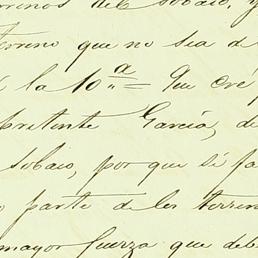 terrenos del sobaio, y
terreno que no sea de
la 10.ª = Que cré
pretente García, de
sobaio, por que si fa
parte de los terren
mayor fuerza que deb